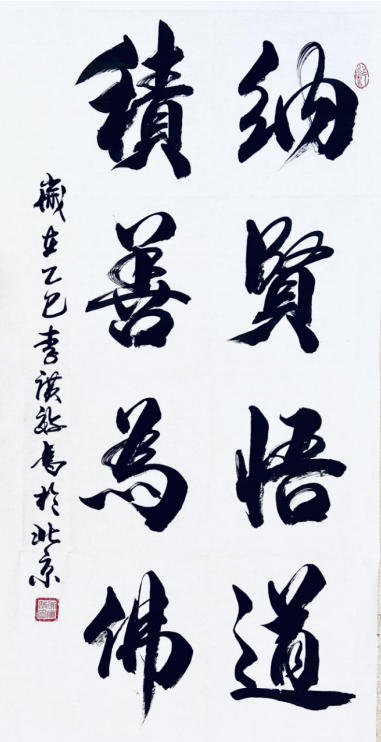 納賢悟道
積善為佛
歲在乙巳李洪海書於北京